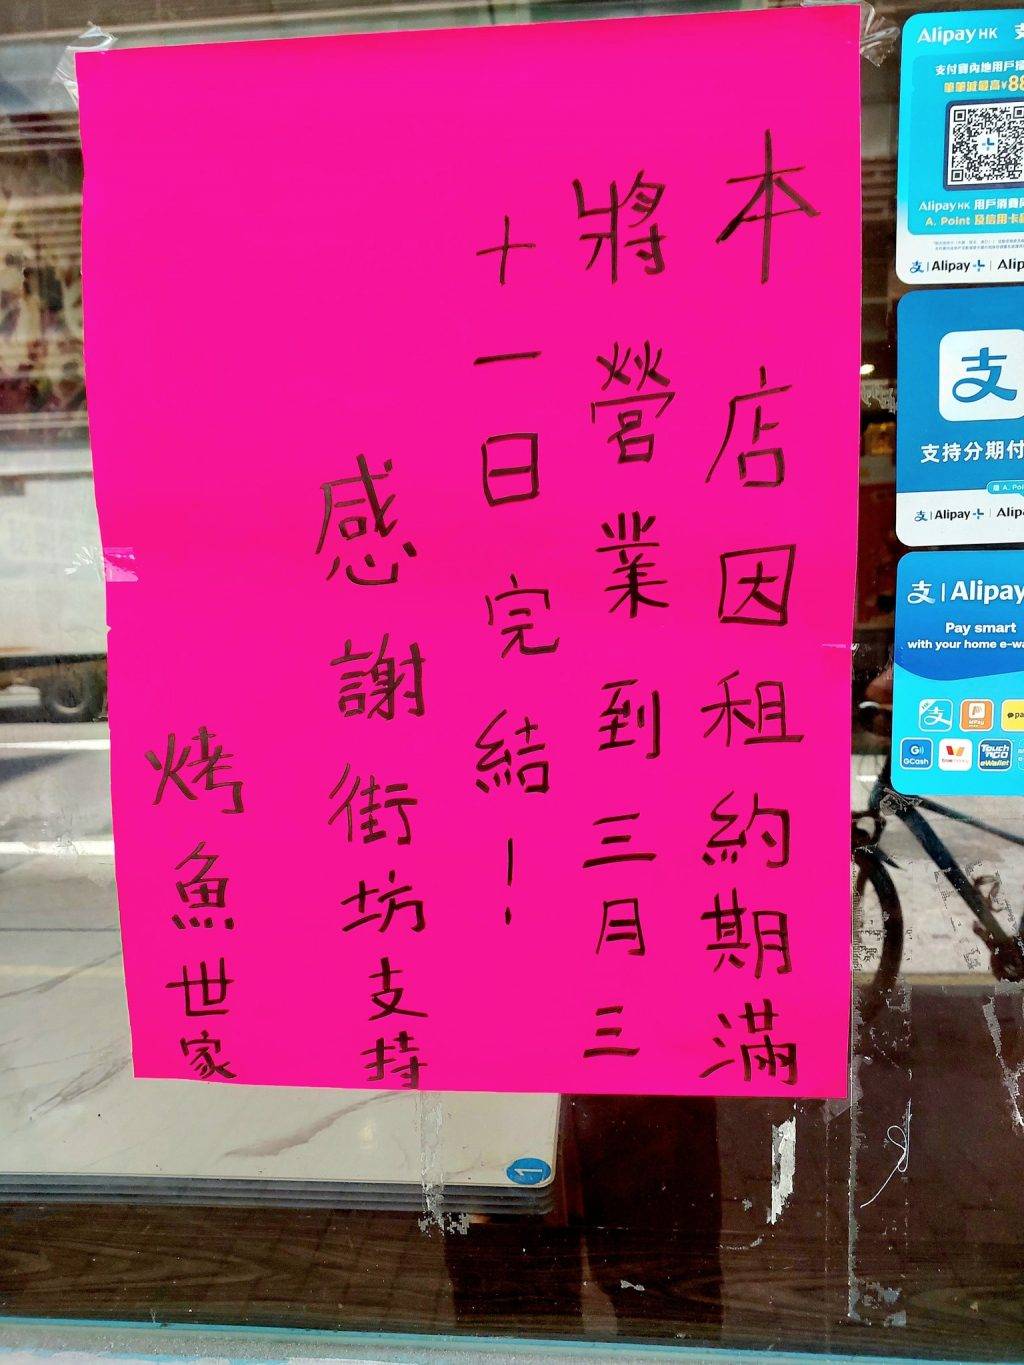 本店因租約期滿
將營業到三月三
十一日完結！
感謝街坊支持
烤魚世家
AlipayHK 支
支付寶內地用戶
筆筆減最高¥88
AlipayHK 用戶消費
A. Point 及信用卡
支 | Alipay+ | Alip
支
支持分期付
支 | Alipay+ | Alip
支 | Alipay
Pay smart
with your home e-wa
GCash
Touch 'n GO eWallet
1